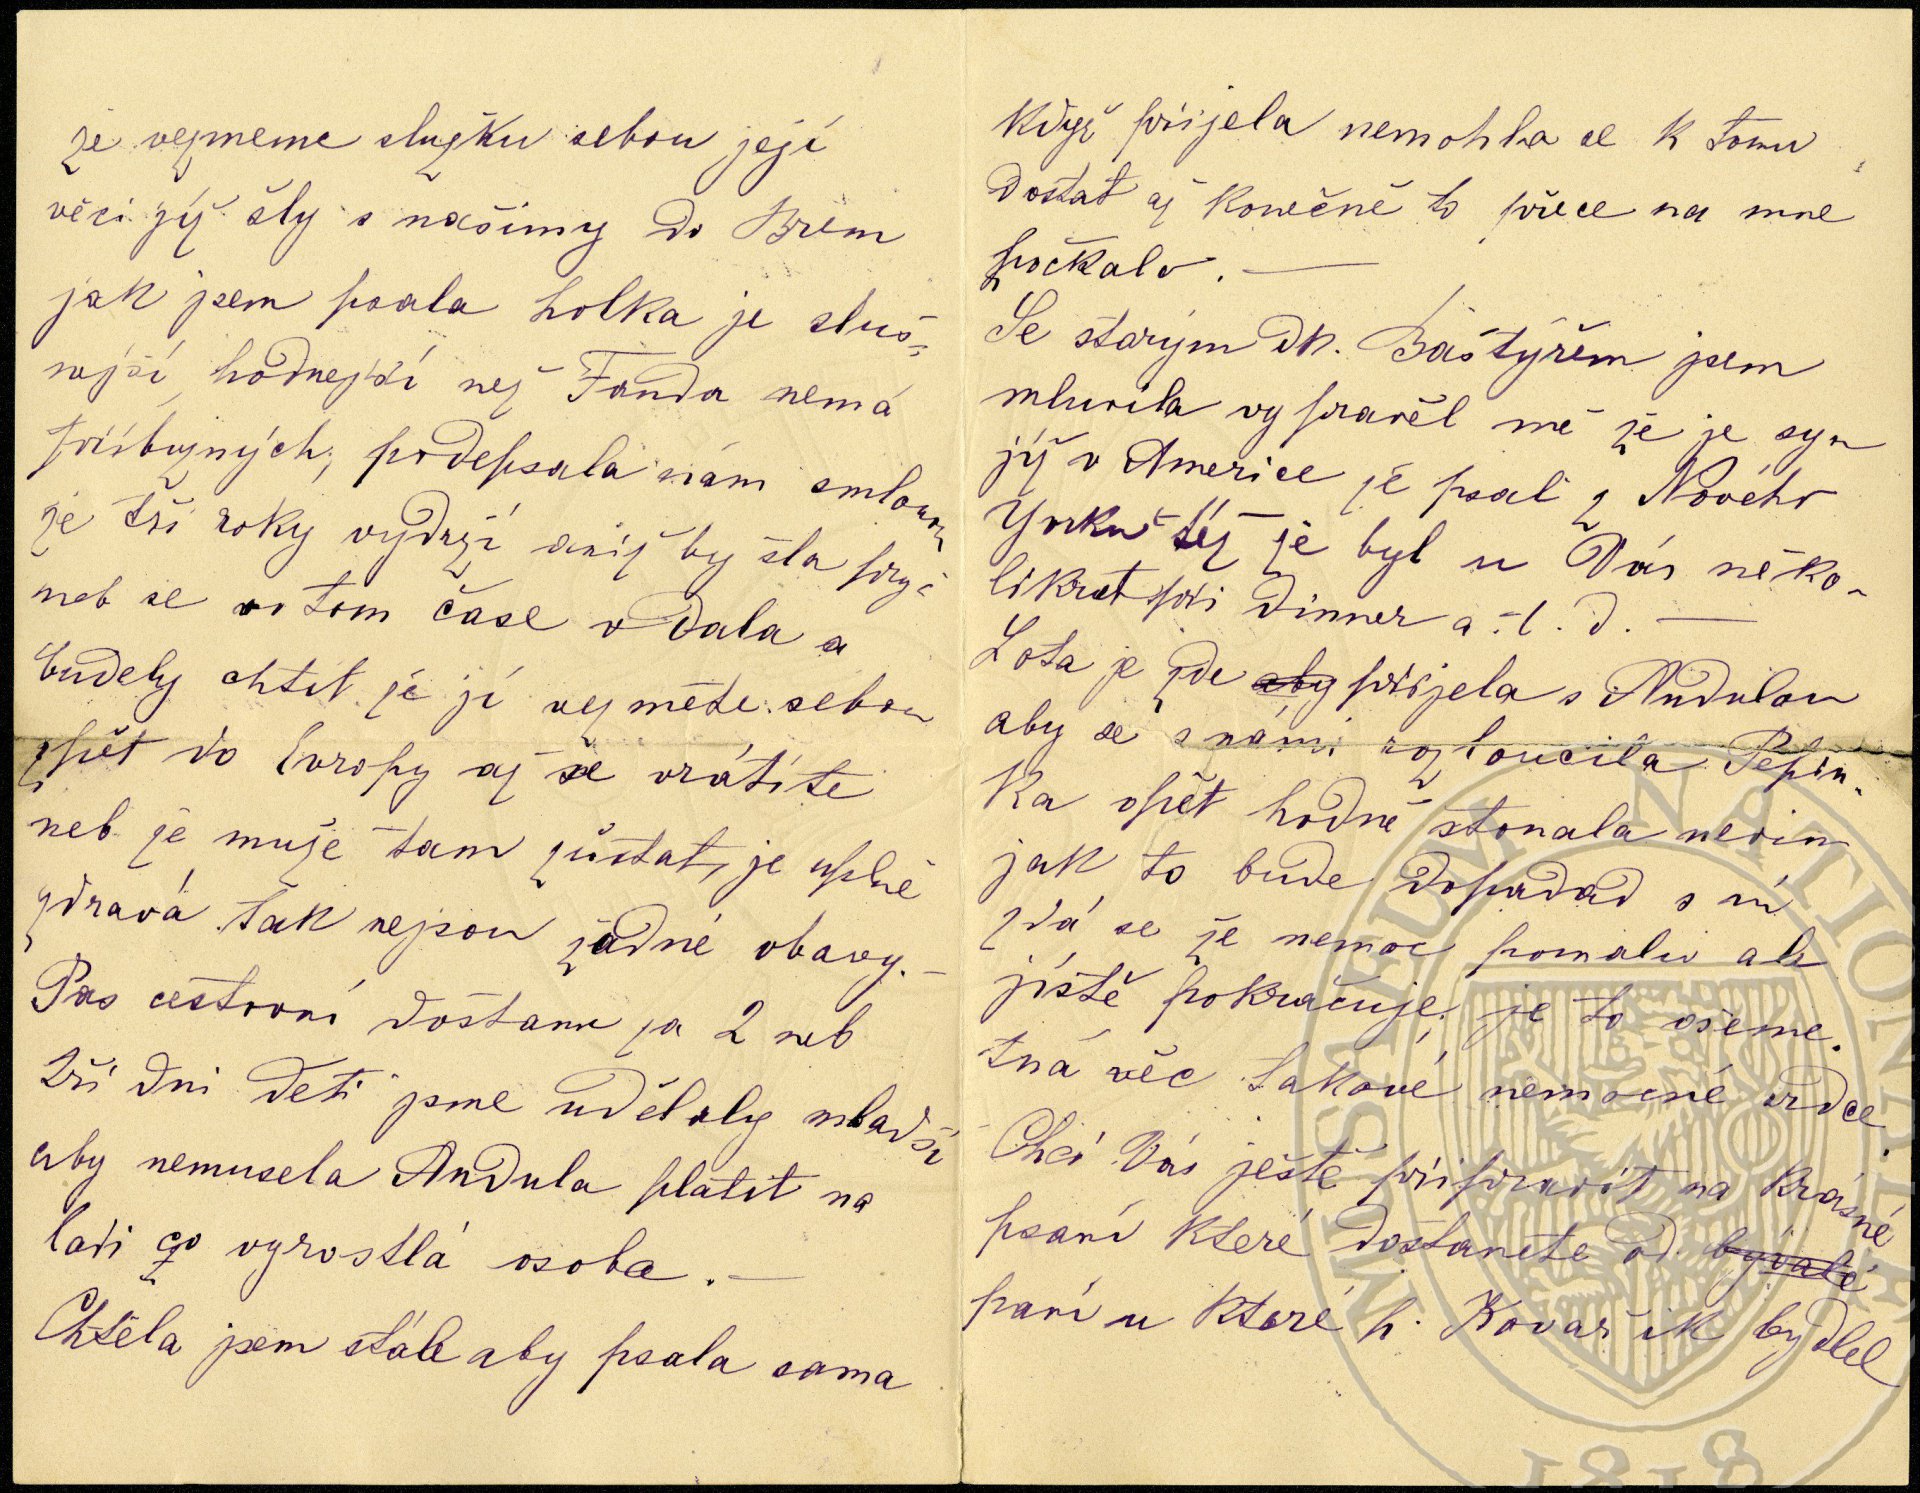 že vezmeme služku sebou její
věci již šly s našimy do Brem
jak jsem psala holka je sluš=
nější, hodnejší než Fanda nemá
příbuzných, podepsala nám smlouvu
že tři roky vydrží aniž by šla pryč
neb se v tom čase v dala a
budely chtit že jí vezměte sebou
zpět do Evropy až se vrátíte
neb že muže tam zůstat, je uplně
zdravá tak nejsou žádné obavy. –
Pas cestovní dostanu za 2 neb
tři dni děti jsme udělaly mladší
aby nemusela Andula platit na
lodi co vyrostlá osoba. —
Chtěla jsem stále aby psala sama
Když přijela nemohla se k tomu
dostat až konečně to přece na mne
počkalo. —
Se starým dr. Baštýřem jsem
mluvila vypravěl mě že je syn
jíž v Americe že psali z Nového
Yorku též že byl u Vás něko-
likrát při dinner a. t. d. —
Lota je zde aby přijela s Andulou
aby se s námi rozloučila Pepin-
ka opět hodně stonala nevim
jak to bude dopadad s ní
zdá se že nemoc pomalu ale
jistě pokračuje, je to ošeme-
tná věc takové nemocné srdce.
Chci Vás ještě připravit na krásné
psaní které dostanete od bývalé
paní u které p. Kovařik bydlel
MUSEUM NATIONALE
1818